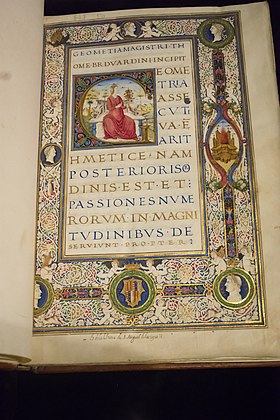 GEOMETIA MAGISTRI TH
OME BRDVARDINI INCIPIT
GEOME
TRIA
ASSE
CVT
VA E
ARIT
HMETICE: NAM
POSTERIORIS O
DINIS EST ET
PASSIONES NVME
RORVM IN MAGNI
TVDINIBVS DE
SERVIVNT PROPTER